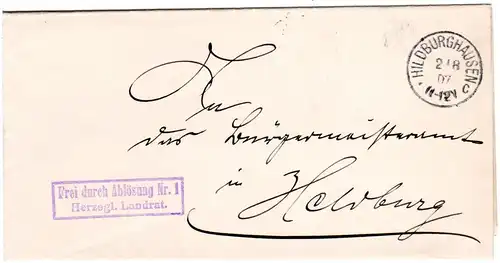 HILDBURGHAUSEN
2 8
07
11-12V
c
An
das Bürgermeisteramt
in
Heldburg
Frei durch Ablösung Nr. 1
Herzogl. Landrat.